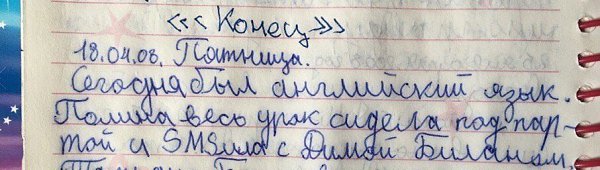 <<< Конец >>>
18.04.08. Пятница.
Сегодня был английский язык.
Полина весь урак сидела под пар-
той и SMSила с Димой Биланом.